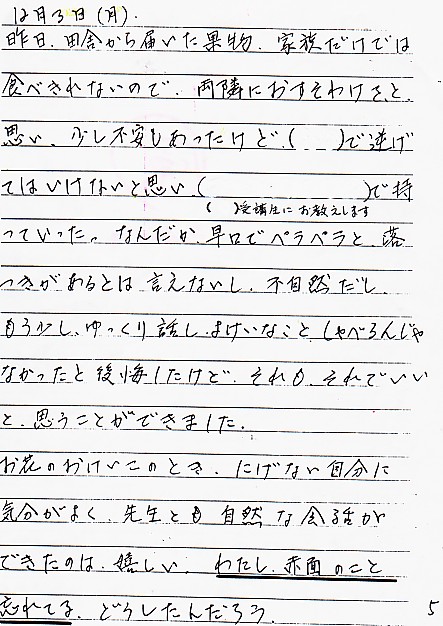 12月3日(月).
昨日、田舎から届いた果物、家族だけでは
食べきれないので、両隣におすそわけさ、と、
思い、少し不安もあったけど、(   )で逃げ
てはいけないと思い、(      )で持
( )受講生にお教えします
っていった。なんだか、早口でペラペラと、落
つきがあるとは言えないし、不自然だし、
もう少し、ゆっくり話し、よけいなこと、しゃべらんじゃ
なかったと後悔したけど、それも、それでいい
と、思うことができました。
お花のおけいこのとき、にげない自分に
気分がよく、先生とも自然な会話が
できたのは、嬉しい、わたし、赤面のこと
忘れてる、どうしたんだろう、
5